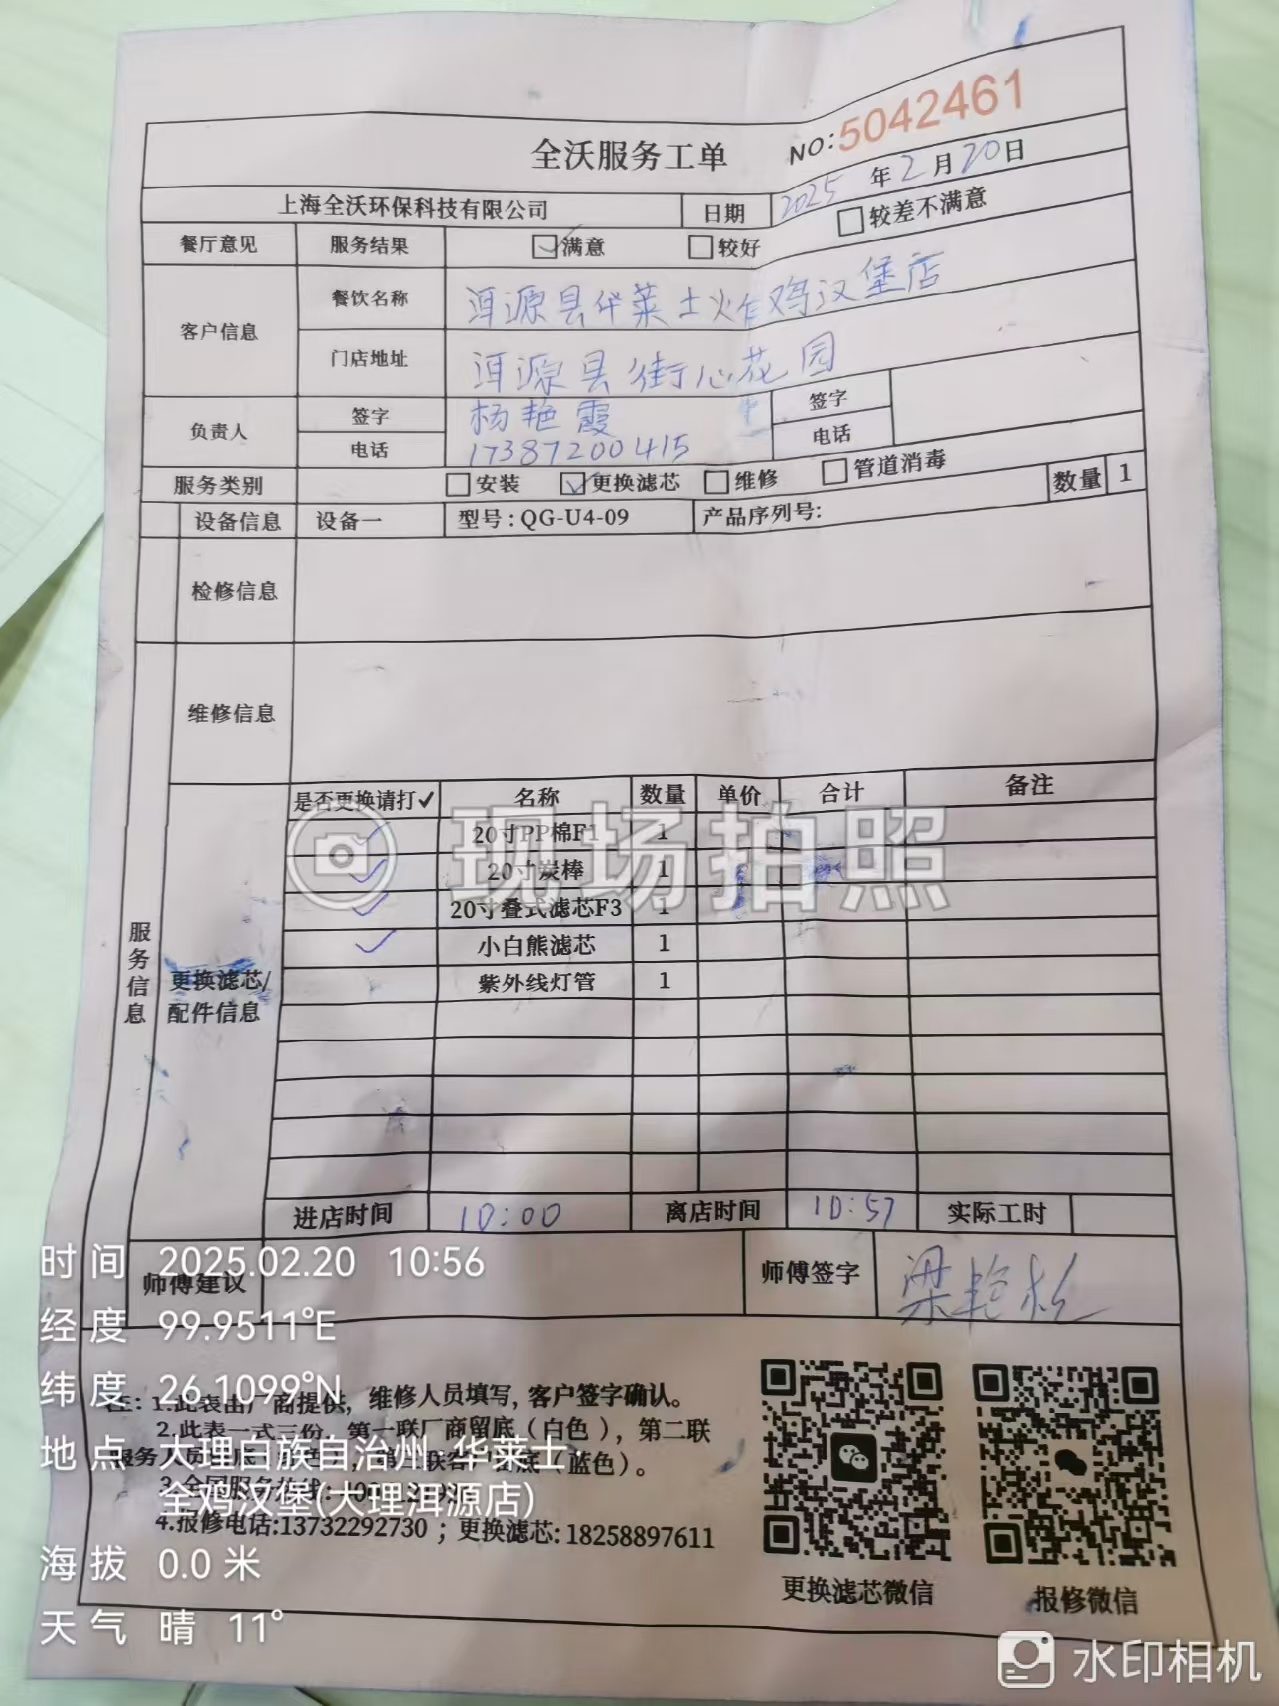 全沃服务工单
NO:5042461
上海全沃环保科技有限公司 日期 2025年2月20日
餐厅意见 服务结果 满意 较好 较差不满意
客户信息 餐饮名称 洱源县华莱士炸鸡汉堡店
门店地址 洱源县街心花园
负责人 签字 杨艳霞 签字
电话 17387200415 电话
服务类别 安装 更换滤芯 维修 管道消毒 数量 1
设备信息 设备一 型号:QG-U4-09 产品序列号:
检修信息
维修信息
服务信息
更换滤芯/
配件信息
是否更换请打✓ 名称 数量 单价 合计 备注
✓ 20寸PP棉F1 1
✓ 20寸炭棒 1
✓ 20寸叠式滤芯F3 1
✓ 小白熊滤芯 1
紫外线灯管 1
现场拍照
进店时间 10:00 离店时间 10:57 实际工时
师傅建议 师傅签字 梁艳松
注: 1.此表由厂商提供, 维修人员填写, 客户签字确认。
2.此表一式三份, 第一联厂商留底(白色), 第二联
服务人员留底 (蓝色)。
3.全国服务热线:
4.报修电话:13732292730 ; 更换滤芯: 18258897611
更换滤芯微信 报修微信
时间 2025.02.20 10:56
经度 99.9511°E
纬度 26.1099°N
地点 大理白族自治州·华莱士·
全鸡汉堡(大理洱源店)
海拔 0.0 米
天气 晴 11°
水印相机